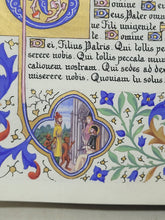 Domine
Deus Pater omn
Fili unigenite
Domine
Dei Filius Patris. Qui tollis pec
rere nobis. Qui tollis peccata mun
cationem nostram. Qui sedes ad dex
miserere nobis. Quoniam tu solus